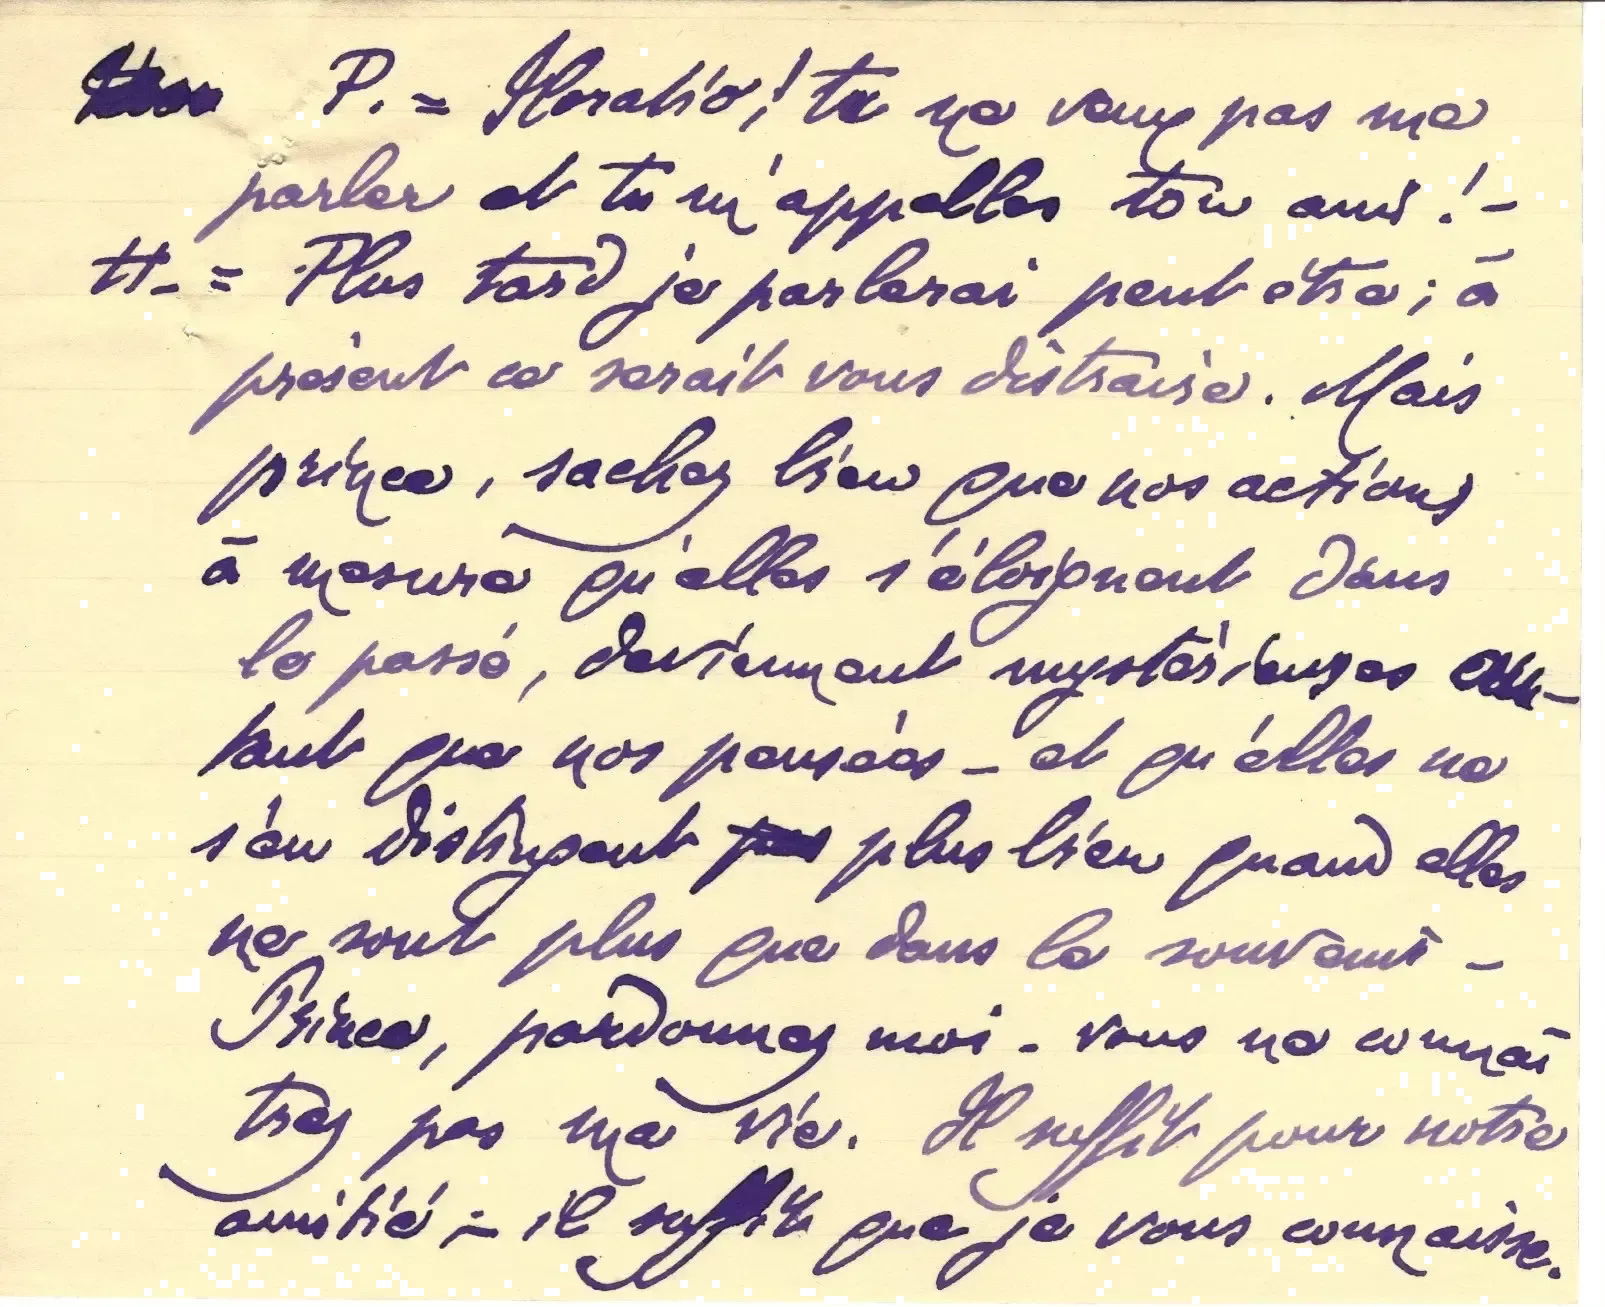 P. = Horatio! tu ne veux pas me
parler et tu m'appelles ton ami! -
H. = Plus tard je parlerai peut être; à
présent ce serait vous distraire. Mais
prince, sachez bien que nos actions
à mesure qu'elles s'éloignent dans
le passé, deviennent mystérieuses au-
tant que nos pensées - et qu'elles ne
s'en distinguent plus bien quand elles
ne sont plus que dans le souvenir -
Prince, pardonnez moi - vous ne connaî
trez pas ma vie. Il suffit pour notre
amitié; - il suffit que je vous connaisse.